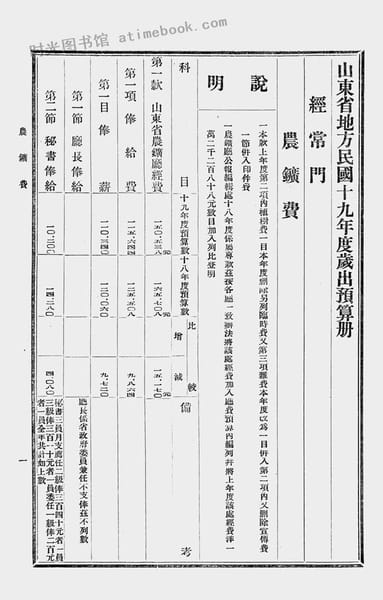 时光图书馆 - atimebook.com
山東省地方民國十九年度歲出預算册
經常門
農鑛費
說明
一本款上年度第二項內植樹費一目本年度劃歸另列臨時費又第三項雜費本年度改為一目併入第二項內又刪除宣傳費
一節併入印件費
一農鑛廳公報編輯處十八年度係屬專款茲援各廳一致辦法將該處經費加入廳費預算內編列并將上年度該處經費洋一
萬二千二百八十八元數目加入列比登明
科目
十九年度預算數
十八年度預算數
比較
增
減
備考
第一款 山東省農鑛廳經費
一五〇.五三八元
一六五.七〇八元
一五.一七〇元
第一項 俸給費
一一五.六四四
一二五.五〇八
九.八六四
第一目 俸薪
一一〇.三四〇
一二〇.〇六〇
九.七二〇
第一節 廳長俸給
廳長係省政府委員兼任不支俸茲不列數
第二節 秘書俸給
一〇.二〇〇
一四.二八〇
四.〇八〇
秘書三員月支薦任二級俸三百四十元者一員
三級俸三百一十元者一員委任一級俸二百元
者一員全年共計如上數
農鑛費
一